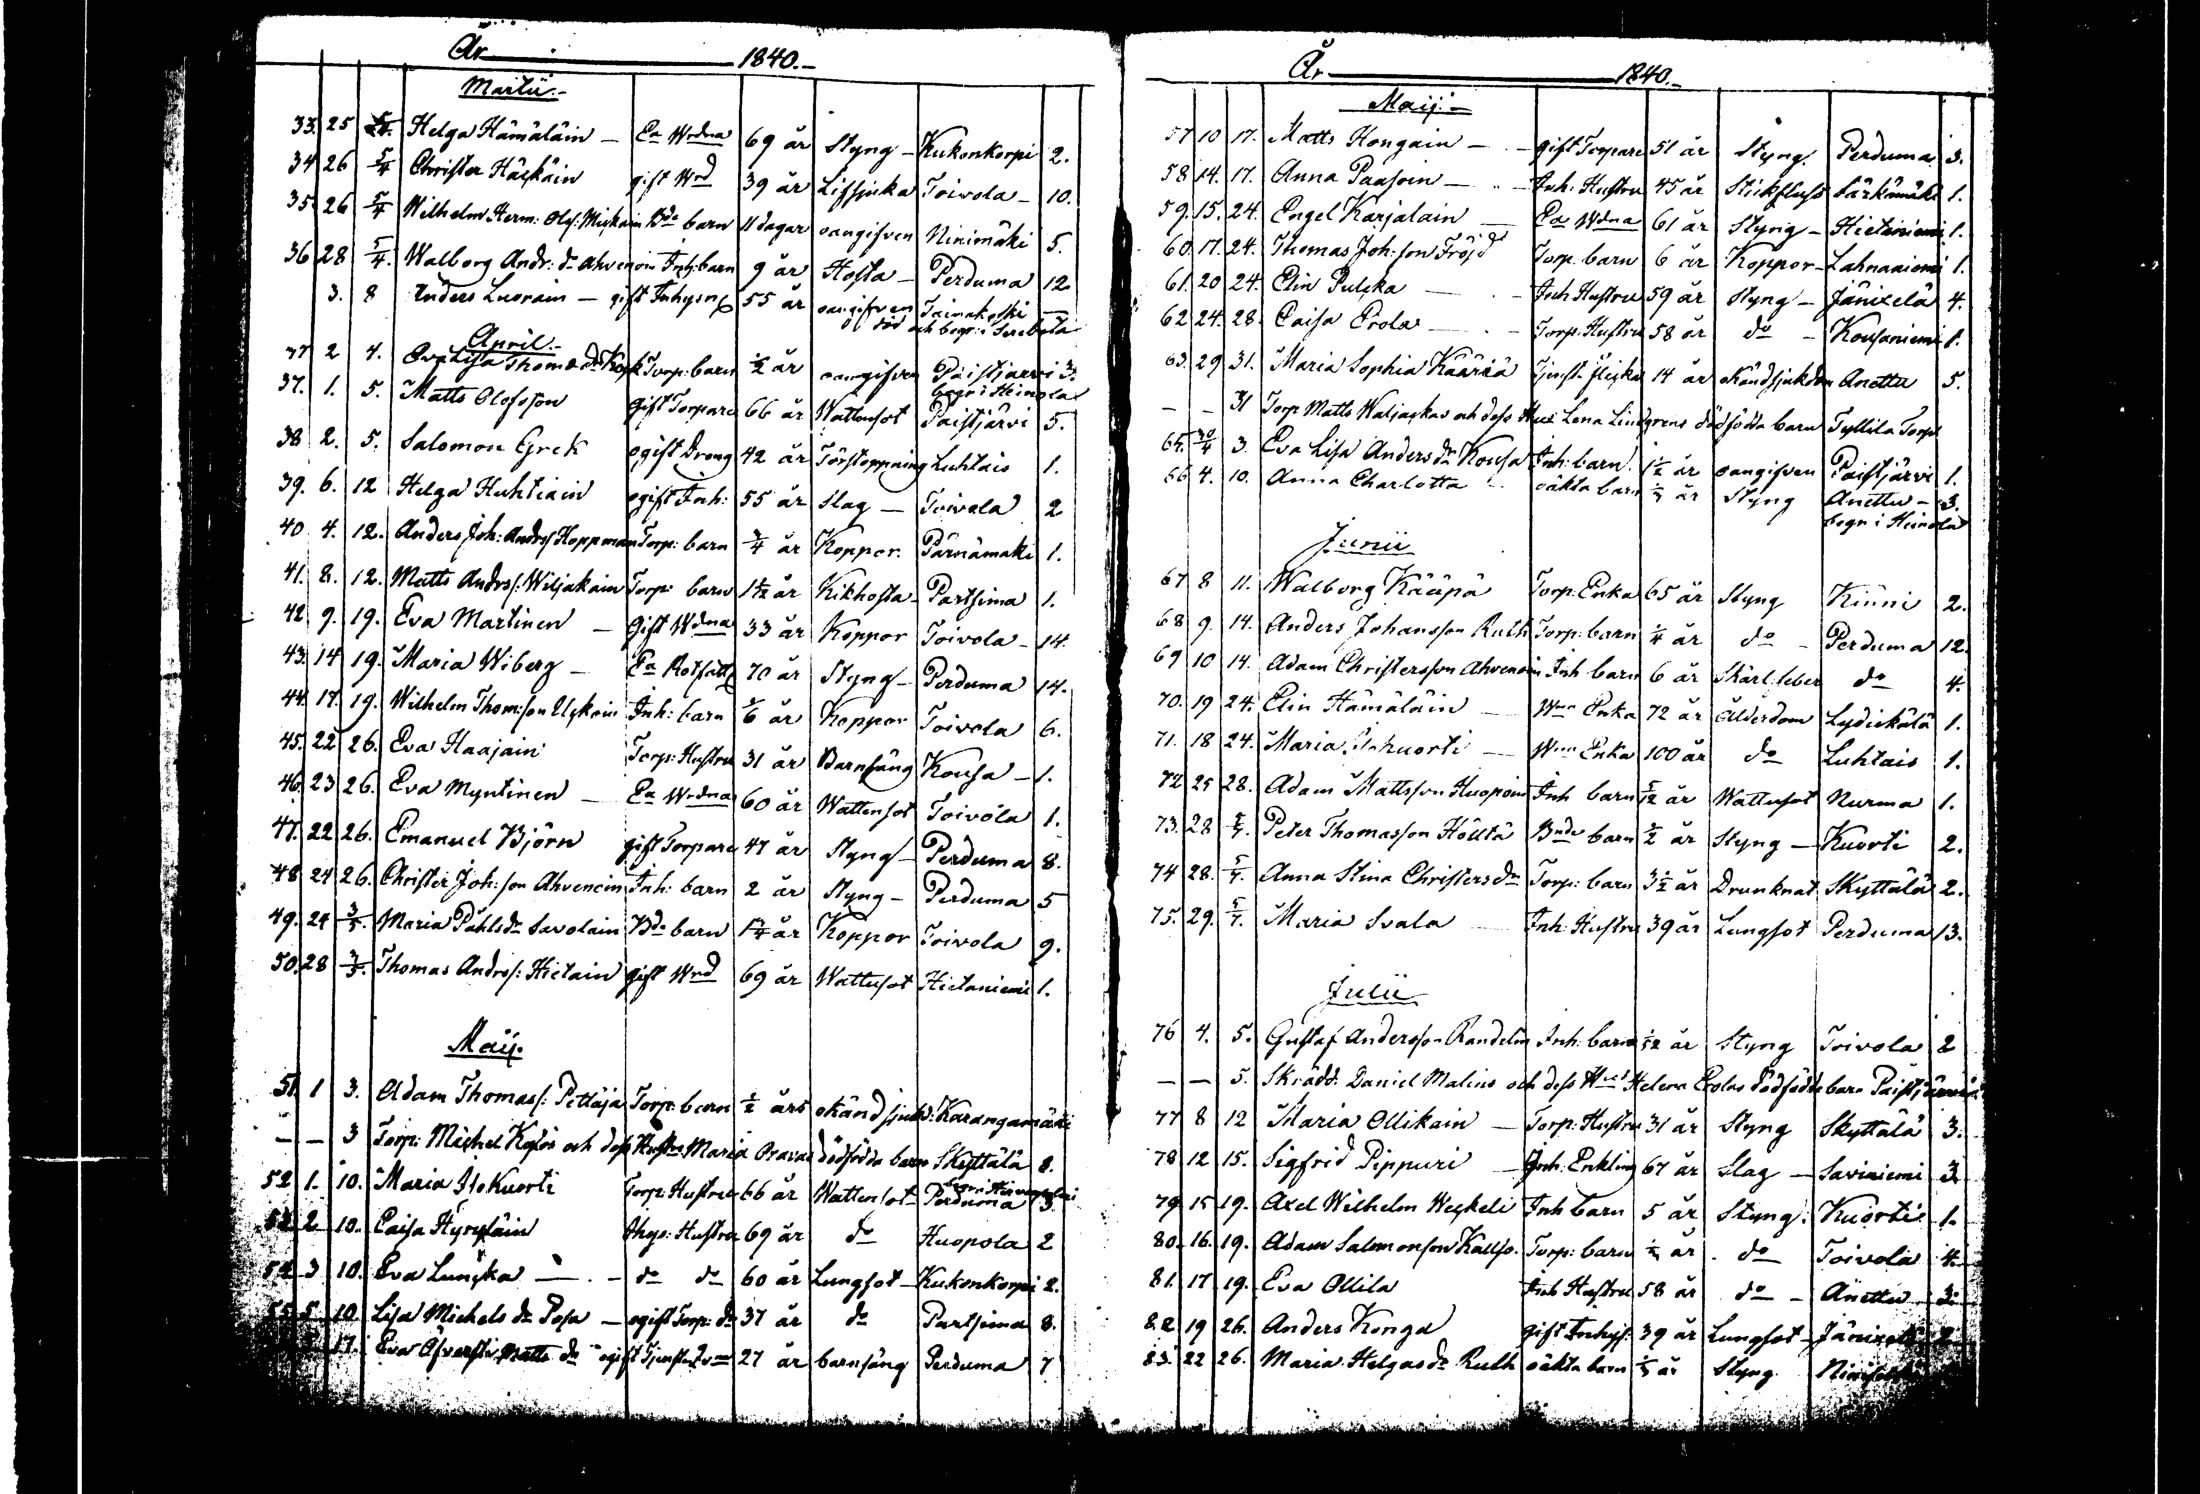 År 1840.
Martii.
33. 25 5/4. Helga Hämäläin — Ea Wrdna 69 år Styng — Kukonkorpi 2.
34 26 5/4 Christer Häskäin gift Wrd 39 år Lifsjuka Toivola — 10.
35. 26 5/4 Wilhelm Herm: Olofs: Miskain Bde barn 11 dagar oangifven Ninimäki 5.
36 28 5/4. Walborg Andr: dr Ahvenain Inh: barn 9 år Hosta — Perduma 12
3. 8 Anders Luorain — gift Inhysn 55 år oangifven Taimakoski —
död och begr: i Serebola
April.
37 2 4. Eva Lisa Thomæ dr Torp: barn 1/2 år oangifven Päistjärvi 3.
begr i Heinola
37. 1. 5. Matts Olofsson Gift Torpare 66 år Wattensot Paistjärvi 5.
38 2. 5. Salomon Grek ogift Dreng 42 år Förstoppning Luhtais 1.
39. 6. 12 Helga Huhtiain ogift Inh: 55 år Slag — Toivola 2
40 4. 12. Anders Joh: Andrs Hoppman Torp: barn 3/4 år Koppor. Pärnämäki 1.
41. 8. 12. Matts Andrs: Wiljakain Torp: barn 1 1/2 år Kikhosta — Partsima 1.
42. 9. 19. Eva Martinen — Gift Wdna 33 år Koppor Toivola — 14.
43. 14 19. Maria Wiberg — Ea Rotsatt 70 år Styng — Perduma 14.
44. 17. 19. Wilhelm Thom:son Uskain Inh: barn 1/6 år Koppor Toivola 6.
45. 22 26. Eva Haajain Torp: Hustru 31 år Barnsäng Kousa — 1.
46. 23 26. Eva Myntinen — Ea Wrdna 60 år Wattensot Toivola 1.
47. 22 26. Emanuel Björn gift Torpare 47 år Styng — Perduma 8.
48 24 26. Christer Joh: son Ahvenain Inh: barn 2 år Styng — Perduma 5
49. 24 3/5. Maria Påhlsdr Savolain Bde barn 1 3/4 år Koppor Toivola 9.
50. 28 3/5. Thomas Andrs: Hietain gift Wrd 69 år Wattusot Hietaniemi 1.
Maij.
51. 1 3. Adam Thomas: Pettäja Torp: barn 1/2 års okänd sjukd: Karangamäki
— — 3 Torp: Michel Kylös och dess Hustru Maria Oravas dödfödda barn Skyttälä 8.
52 1. 10. Maria Isokuorti Torp: Hustru 66 år Wattensot Perduma 3
53 2 10. Caisa Hyryläin Inhys: Hustru 69 år do Huopola 2
54 3 10. Eva Lunska — do do 60 år Lungsot — Kukonkorpi 2.
55. 5 10. Lisa Michels dr Posa — ogift Torp: dr 37 år do Partsima 8.
17. Eva Matts dr ogift 27 år barnsäng Perduma 7
År 1840.
Maij.
57 10 17. Matts Hongain — gift Torpare 51 år Styng. Perduma 3.
58 14. 17. Anna Paasoin — Inh: Hustru 45 år Stickfluss Särkämäki 1.
59. 15. 24. Engel Karjalain Ea Wdna 61 år Styng — Hietaniemi 1.
60. 17. 24. Thomas Joh:son Fröjd Torp: barn 6 år Koppor — Lahnaniemi 1.
61. 20 24. Elin Pulska — Inh Hustru 59 år Styng — Jänixelä 4.
62 24. 28. Caisa Erola — Torp: Hustru 58 år do — Kousaniemi 1.
63. 29 31. Maria Sophia Kääriä Tjenst: flicka 14 år okänd sjukdom Anettu 5.
— — 31 Torp Matts Waljackas och dess Hus Lena Lindgrens dödfödda barn Tyllila Torp
65. 30/4 3. Eva Lisa Anders dr Kousa Inh: barn 1 1/2 år oangifven Paistjärvi 1.
66 4. 10. Anna Charlotta oäkta barn år Styng Anettu — 3.
begr i Heinola
Junii
67 8 11. Walborg Kääpä Torp: Enka 65 år Styng Kinni 2.
68 9. 14. Anders Johansson Ruth Torp: barn 1/4 år do — Perduma 12.
69 10 14. Adam Christersson Ahvenain Inh barn 6 år Skarl: feber do 4.
70. 19 24. Elin Hämäläin — Wrn Enka 72 år Ålderdom Lydickälä 1.
71. 18 24. Maria Isokuorti — Wrn Enka 100 år do Luhtais 1.
72 25 28. Adam Mattsson Huopain Inh barn 5/12 år Wattusot Nurma 1.
73. 28 5/7. Peter Thomasson Hölttä Bnde barn 1/2 år Styng — Kuorti 2.
74 28. 5/7. Anna Stina Christersdr Torp: barn 3 1/2 år Drunknat Skyttälä 2.
75. 29. 5/7. Maria Svala Inh: Hustru 39 år Lungsot Perduma 13.
Julii
76 4. 5. Gustaf Andersson Randelin Inh: barn 1/12 år Styng Toivola 2
— — 5. Skrädd: Daniel Malins och dess Hust Helena Erolas dödfödda barn Paistjärvi
77 8 12 Maria Ollikain — Torp: Hustru 31 år Styng Skyttälä 3.
78 12 15. Sigfrid Pippuri — Inh: Enkling 67 år Slag — Saviniemi 3
79. 15 19. Axel Wilhelm Weckeli Inh barn 5 år Styng. Kuortis 1.
80. 16. 19. Adam Salomonson Källjo. Torp: barn år do Toivola 4.
81. 17 19. Eva Ollila Inh Hustru 58 år do — Anettu 3.
82 19 26. Anders Konga gift Inhys: 39 år Lungsot — Jänixelä 2
83. 22 26. Maria Helgasdr Ruth oäkta barn år Styng